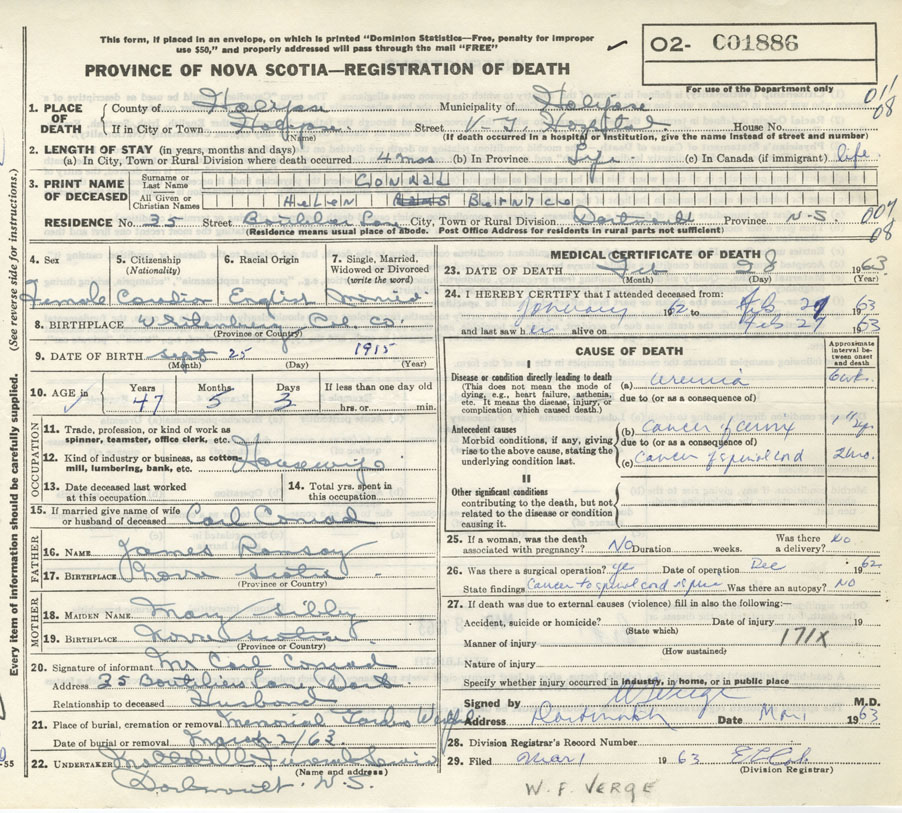 This form, if placed in an envelope, on which is printed "Dominion Statistics—Free, penalty for improper
use $50," and properly addressed will pass through the mail "FREE"
O2- C01886
For use of the Department only
PROVINCE OF NOVA SCOTIA—REGISTRATION OF DEATH
1. PLACE OF DEATH { County of Halifax Municipality of Halifax 01/08
If in City or Town Halifax (Name) Street V G Hospital House No.
(If death occurred in a hospital or institution, give the name instead of street and number)
2. LENGTH OF STAY (in years, months and days)
(a) In City, Town or Rural Division where death occurred 4 mos (b) In Province Life (c) In Canada (if immigrant) life
3. PRINT NAME OF DECEASED { Surname or Last Name CONRAD
All Given or Christian Names HELEN BERNICE
RESIDENCE No. 35 Street Boutiliers Lane City, Town or Rural Division Dartmouth Province N-S. 004/08
(Residence means usual place of abode. Post Office Address for residents in rural parts not sufficient)
(See reverse side for instructions.)
Every item of information should be carefully supplied.
4. Sex 5. Citizenship (Nationality) 6. Racial Origin 7. Single, Married, Widowed or Divorced (write the word)
Female Canadian English Married
8. BIRTHPLACE Col. Co.
(Province or Country)
9. DATE OF BIRTH Sept 25 1915
(Month) (Day) (Year)
10. AGE in Years 47 Months 5 Days 3 If less than one day old
hrs. or min.
OCCUPATION
11. Trade, profession, or kind of work as spinner, teamster, office clerk, etc.
12. Kind of industry or business, as cotton mill, lumbering, bank, etc. Housewife
13. Date deceased last worked at this occupation 14. Total yrs. spent in this occupation
15. If married give name of wife or husband of deceased Carl Conrad
FATHER
16. NAME James Ramsay
17. BIRTHPLACE Nova Scotia
(Province or Country)
MOTHER
18. MAIDEN NAME Mary Sibley
19. BIRTHPLACE Nova Scotia
(Province or Country)
20. Signature of informant Mr Carl Conrad
Address 35 Boutiliers Lane Dart.
Relationship to deceased Husband
21. Place of burial, cremation or removal Memorial
Date of burial or removal March 2/63
22. UNDERTAKER Funeral Service
(Name and address)
Dartmouth. N.S.
-55
MEDICAL CERTIFICATE OF DEATH
23. DATE OF DEATH Feb 28 1963
(Month) (Day) (Year)
24. I HEREBY CERTIFY that I attended deceased from:
January 1962 to Feb 27 1963
and last saw her alive on Feb 27 1963
CAUSE OF DEATH Approximate interval between onset and death
I
Disease or condition directly leading to death (This does not mean the mode of dying, e.g., heart failure, asthenia, etc. It means the disease, injury, or complication which caused death.) (a) uremia 6 wk.
due to (or as a consequence of)
Antecedent causes
Morbid conditions, if any, giving rise to the above cause, stating the underlying condition last. (b) Cancer of cervix 1 1/2 yr
due to (or as a consequence of)
(c) Cancer of spinal cord 2 mo.
II
Other significant conditions contributing to the death, but not related to the disease or condition causing it.
25. If a woman, was the death associated with pregnancy? No Duration weeks. Was there a delivery? No
26. Was there a surgical operation? yes Date of operation Dec 1962
State findings Cancer to spinal cord & spine Was there an autopsy? NO
27. If death was due to external causes (violence) fill in also the following:
Accident, suicide or homicide? Date of injury 19
(State which)
Manner of injury 171X
(How sustained)
Nature of injury
Specify whether injury occurred in industry, in home, or in public place
Signed by W F Verge M.D.
Address Dartmouth Date Mar 1 1963
28. Division Registrar's Record Number
29. Filed Mar 1 1963
(Division Registrar)
W. F. VERGE